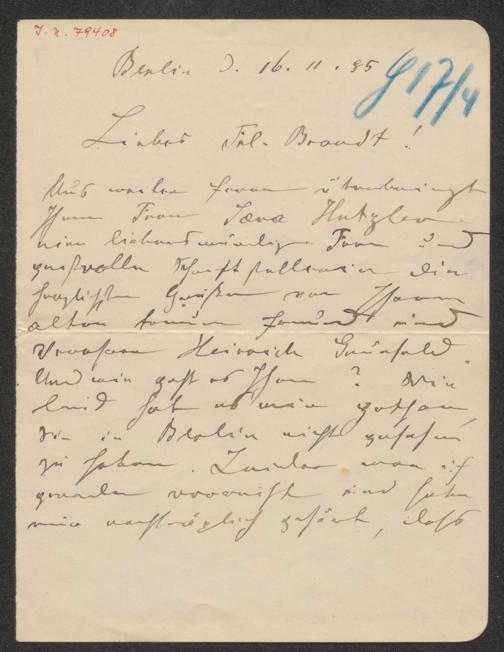 I. N. 79408
Berlin d. 16. 11. 95
G 17/4
Liebes Frl. Brandt!
Aus weiter Ferne überbringt
Ihnen Frau Hutzler
eine liebenswürdige Frau und
geistvolle Schriftstellerin die
herzlichsten Grüße von Ihrem
alten treuen Freund und
Verehrer Heinrich Grünfeld.
Und wie geht es Ihnen? Wie
leid hat es mir gethan,
Sie in Berlin nicht gesehen
zu haben. Leider war ich
gerade verreist und habe
nur nachträglich gehört, dass